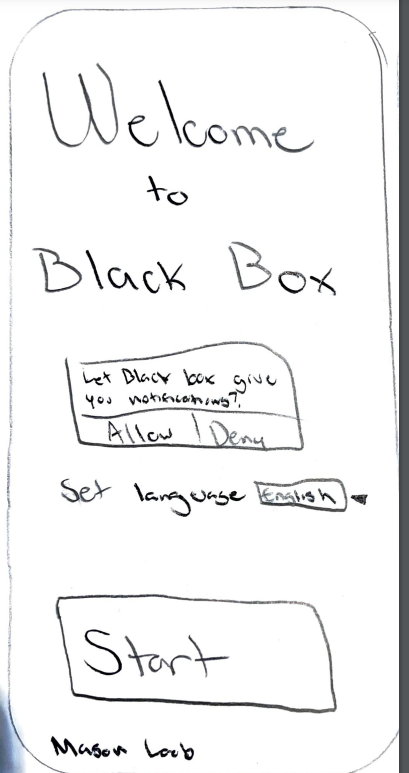 Welcome
to
Black Box
Let Black box give
you notifications?
Allow | Deny
Set language English
Start
Mason Loob